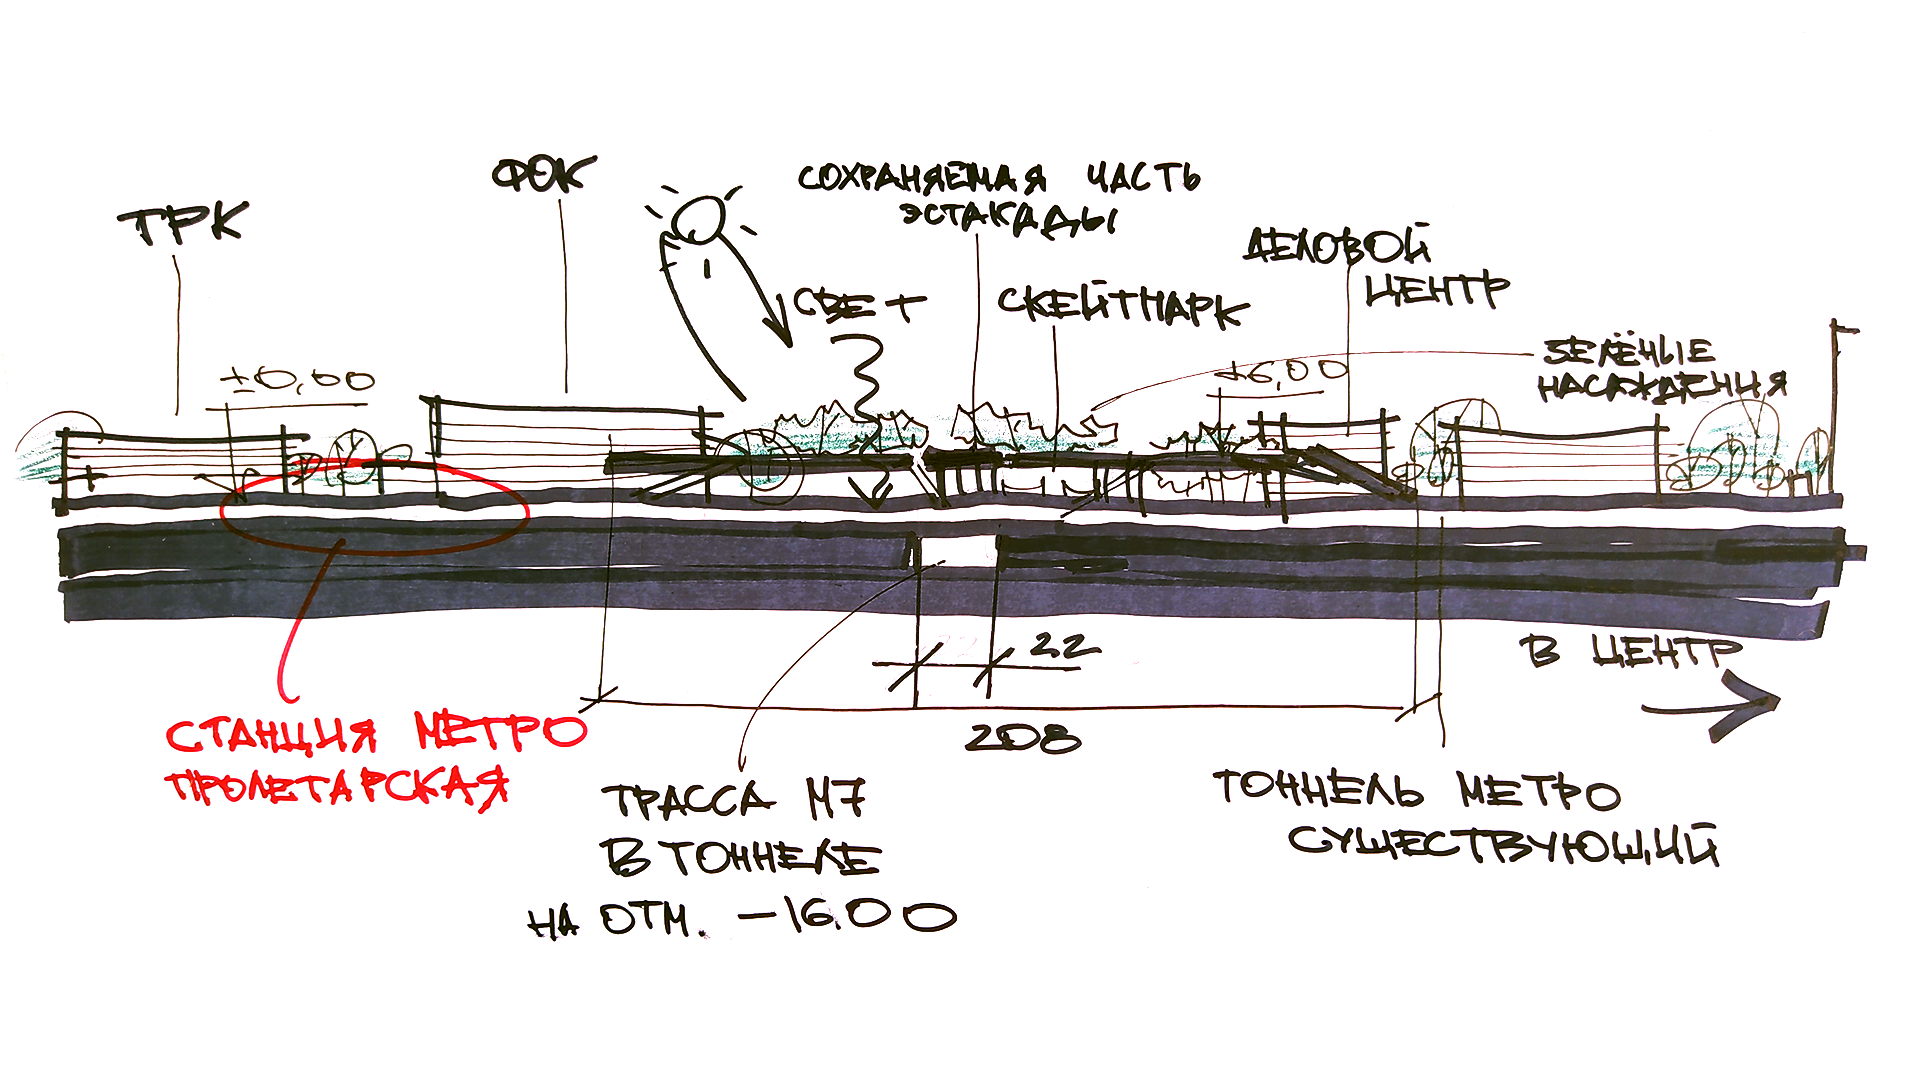 ТРК
ФОК
СОХРАНЯЕМАЯ ЧАСТЬ
ЭСТАКАДЫ
ДЕЛОВОЙ
ЦЕНТР
СВЕТ
СКЕЙТПАРК
ЗЕЛЁНЫЕ
НАСАЖДЕНИЯ
±0,00
+6,00
22
208
В ЦЕНТР
СТАНЦИЯ МЕТРО
ПРОЛЕТАРСКАЯ
ТРАССА М7
В ТОННЕЛЕ
НА ОТМ. -16.00
ТОННЕЛЬ МЕТРО
СУЩЕСТВУЮЩИЙ